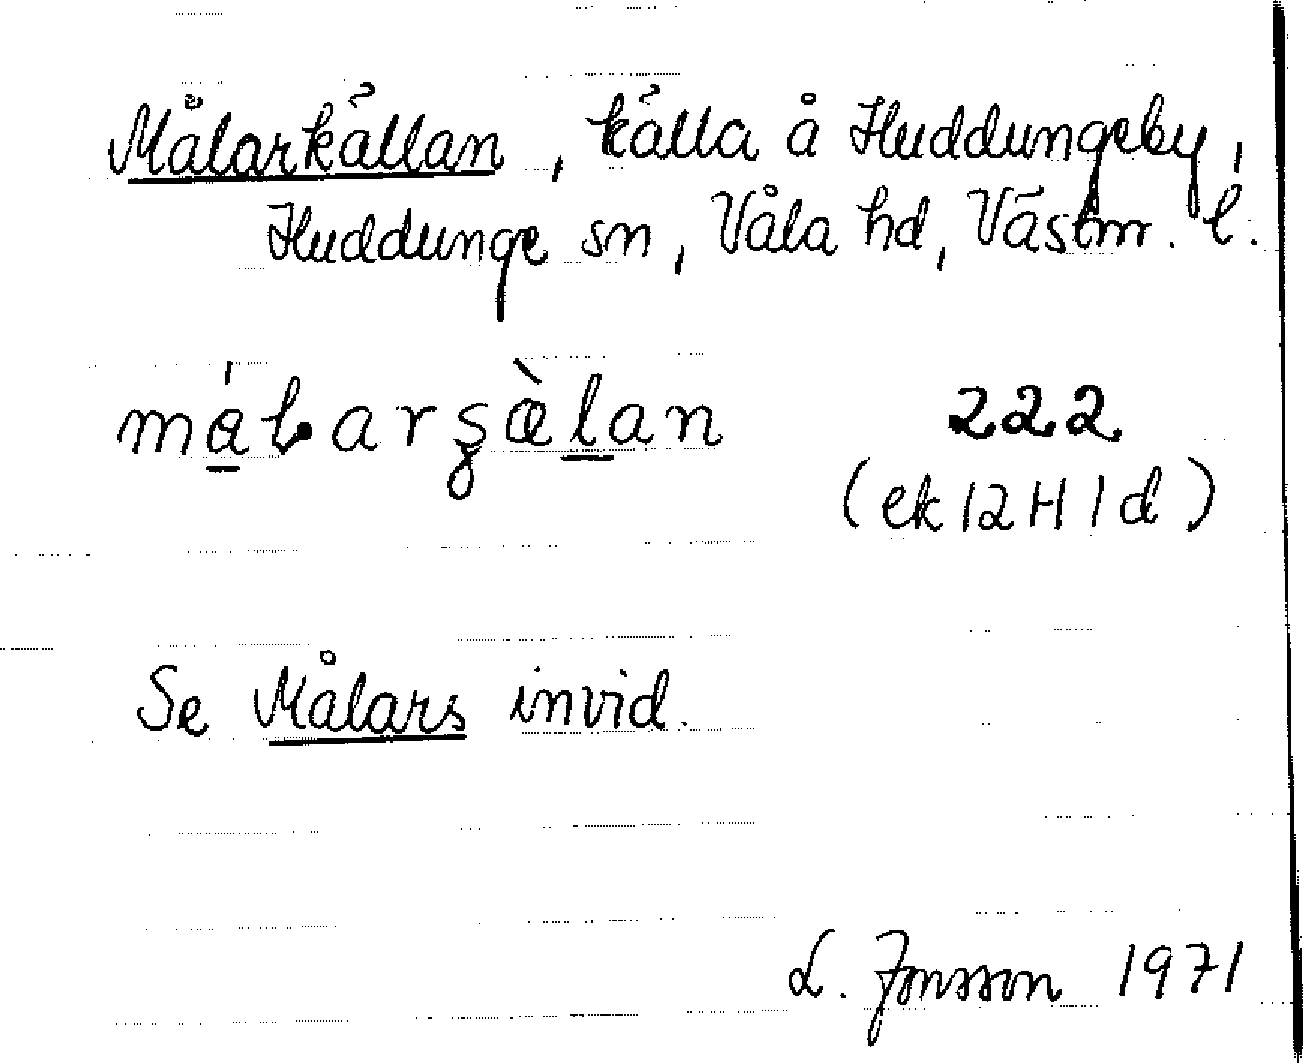 Målarkällan, källa å Huddungeby,
Huddunge sn, Våla hd, Västm. l.
målarşæ̀lan 222
(ek 12H1d)
Se Målars invid.
L. Jonsson 1971